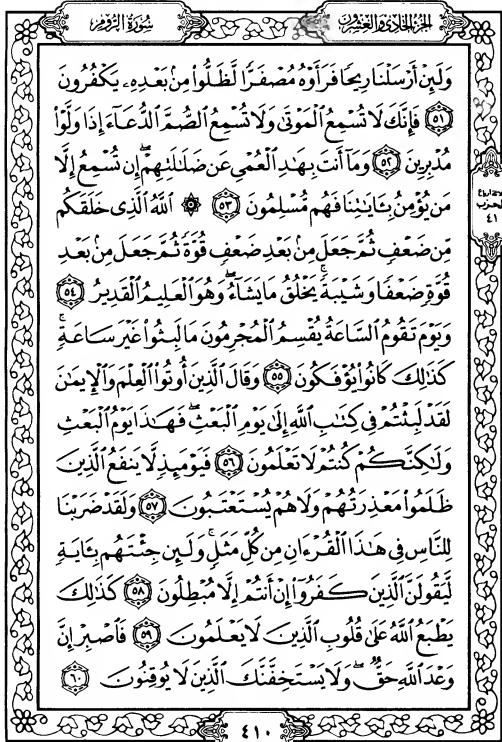 الجزء الحادي والعشرون
سُورَةُ الرُّومِ
وَلَئِنْ أَرْسَلْنَا رِيحًا فَرَأَوْهُ مُصْفَرًّا لَّظَلُّوا۟ مِنۢ بَعْدِهِۦ يَكْفُرُونَ
﴿٥١﴾ فَإِنَّكَ لَا تُسْمِعُ ٱلْمَوْتَىٰ وَلَا تُسْمِعُ ٱلصُّمَّ ٱلدُّعَآءَ إِذَا وَلَّوْا۟
مُدْبِرِينَ ﴿٥٢﴾ وَمَآ أَنتَ بِهَٰدِ ٱلْعُمْىِ عَن ضَلَٰلَتِهِمْ ۖ إِن تُسْمِعُ إِلَّا
مَن يُؤْمِنُ بِـَٔايَٰتِنَا فَهُم مُّسْلِمُونَ ﴿٥٣﴾ ۞ ٱللَّهُ ٱلَّذِى خَلَقَكُم
مِّن ضَعْفٍ ثُمَّ جَعَلَ مِنۢ بَعْدِ ضَعْفٍ قُوَّةً ثُمَّ جَعَلَ مِنۢ بَعْدِ
قُوَّةٍ ضَعْفًا وَشَيْبَةً ۚ يَخْلُقُ مَا يَشَآءُ ۖ وَهُوَ ٱلْعَلِيمُ ٱلْقَدِيرُ ﴿٥٤﴾
وَيَوْمَ تَقُومُ ٱلسَّاعَةُ يُقْسِمُ ٱلْمُجْرِمُونَ مَا لَبِثُوا۟ غَيْرَ سَاعَةٍ ۚ
كَذَٰلِكَ كَانُوا۟ يُؤْفَكُونَ ﴿٥٥﴾ وَقَالَ ٱلَّذِينَ أُوتُوا۟ ٱلْعِلْمَ وَٱلْإِيمَٰنَ
لَقَدْ لَبِثْتُمْ فِى كِتَٰبِ ٱللَّهِ إِلَىٰ يَوْمِ ٱلْبَعْثِ ۖ فَهَٰذَا يَوْمُ ٱلْبَعْثِ
وَلَٰكِنَّكُمْ كُنتُمْ لَا تَعْلَمُونَ ﴿٥٦﴾ فَيَوْمَئِذٍ لَّا يَنفَعُ ٱلَّذِينَ
ظَلَمُوا۟ مَعْذِرَتُهُمْ وَلَا هُمْ يُسْتَعْتَبُونَ ﴿٥٧﴾ وَلَقَدْ ضَرَبْنَا
لِلنَّاسِ فِى هَٰذَا ٱلْقُرْءَانِ مِن كُلِّ مَثَلٍ ۚ وَلَئِن جِئْتَهُم بِـَٔايَةٍ
لَّيَقُولَنَّ ٱلَّذِينَ كَفَرُوٓا۟ إِنْ أَنتُمْ إِلَّا مُبْطِلُونَ ﴿٥٨﴾ كَذَٰلِكَ
يَطْبَعُ ٱللَّهُ عَلَىٰ قُلُوبِ ٱلَّذِينَ لَا يَعْلَمُونَ ﴿٥٩﴾ فَٱصْبِرْ إِنَّ
وَعْدَ ٱللَّهِ حَقٌّ ۖ وَلَا يَسْتَخِفَّنَّكَ ٱلَّذِينَ لَا يُوقِنُونَ ﴿٦٠﴾
الحزب
٤١
٤١٠